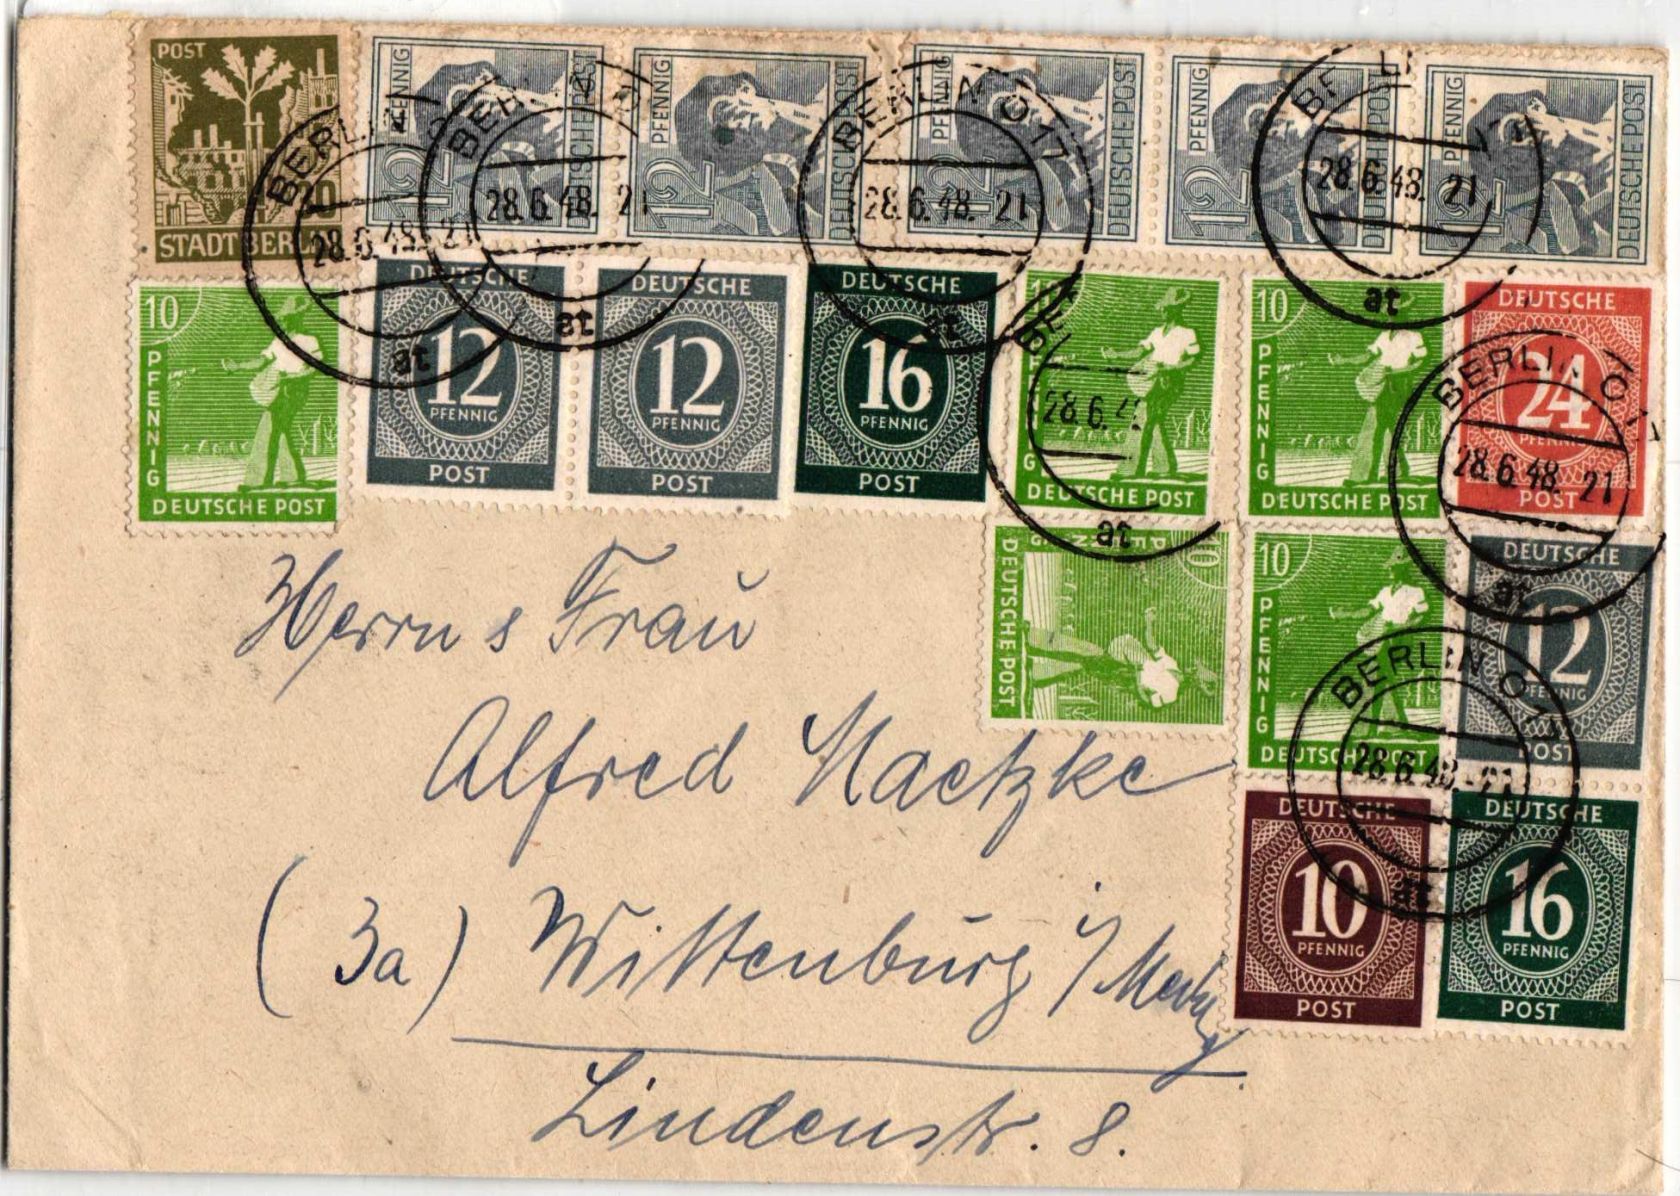 POST
20
STADT BERLIN
12 PFENNIG DEUTSCHE POST
12 PFENNIG DEUTSCHE POST
12 PFENNIG DEUTSCHE POST
12 PFENNIG DEUTSCHE POST
12 PFENNIG DEUTSCHE POST
BERLIN
28.6.48. 21
at
BERLIN
28.6.48. 21
at
BERLIN O 17
28.6.48. 21
at
28.6.48. 21
at
10
PFENNIG
DEUTSCHE POST
DEUTSCHE
12
PFENNIG
POST
DEUTSCHE
12
PFENNIG
POST
DEUTSCHE
16
PFENNIG
POST
10
DEUTSCHE POST
28.6.4
at
10
PFENNIG
DEUTSCHE POST
DEUTSCHE
24
PFENNIG
POST
BERLIN O
28.6.48. 21
at
10
PFENNIG
DEUTSCHE POST
10
PFENNIG
DEUTSCHE POST
DEUTSCHE
12
PFENNIG
POST
BERLIN O 17
28.6.48.-21
at
DEUTSCHE
10
PFENNIG
POST
DEUTSCHE
16
PFENNIG
POST
Herrn & Frau
Alfred Maetzke
(3a) Wittenburg i/Meckl
Lindenstr. 8.